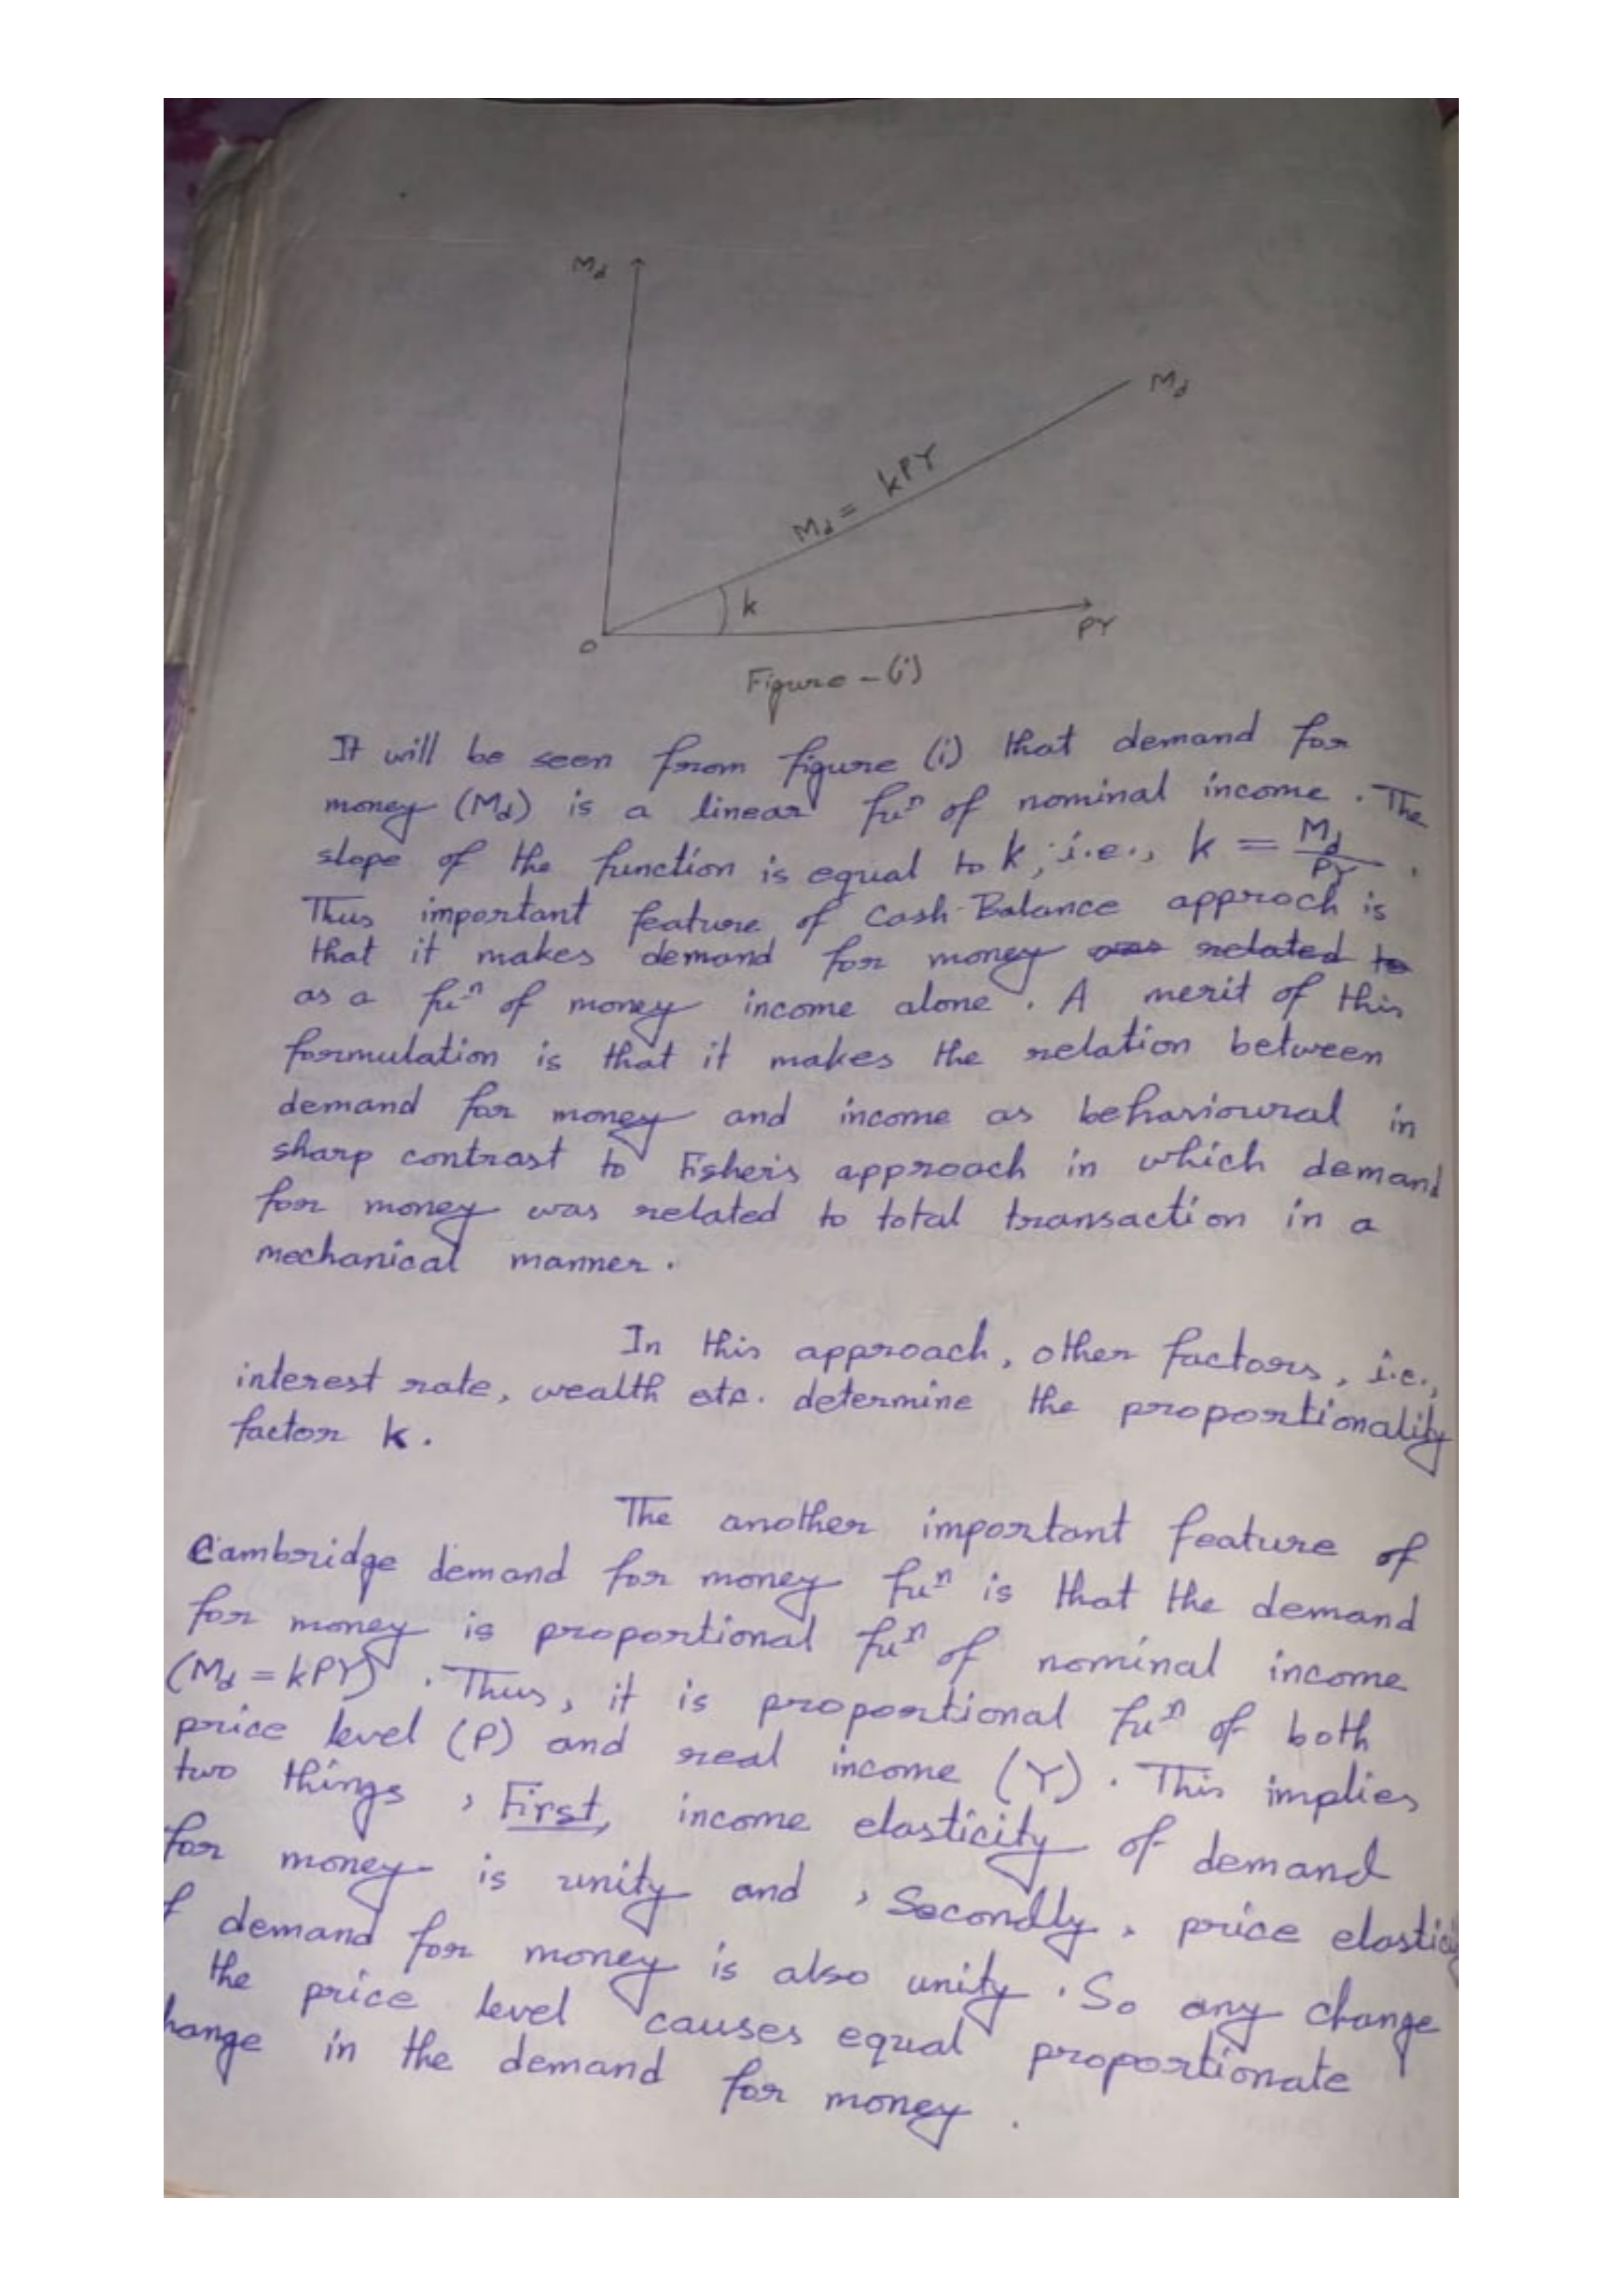 Md
Md
Md = kPY
k
O
PY
Figure - (i)
It will be seen from figure (i) that demand for
money (Md) is a linear fuⁿ of nominal income. The
slope of the function is equal to k, i.e., k = Md/PY.
Thus important feature of Cash-Balance approch is
that it makes demand for money was related to
as a fuⁿ of money income alone. A merit of this
formulation is that it makes the relation between
demand for money and income as behavioural in
sharp contrast to Fisher's approach in which demand
for money was related to total transaction in a
mechanical manner.
In this approach, other factors, i.e.,
interest rate, wealth etc. determine the proportionality
factor k.
The another important feature of
Cambridge demand for money fuⁿ is that the demand
for money is proportional fuⁿ of nominal income
(Md = kPY). Thus, it is proportional fuⁿ of both
price level (P) and real income (Y). This implies
two things, First, income elasticity of demand
for money is unity and, Secondly, price elastici
f demand for money is also unity. So any change
the price level causes equal proportionate
hange in the demand for money.